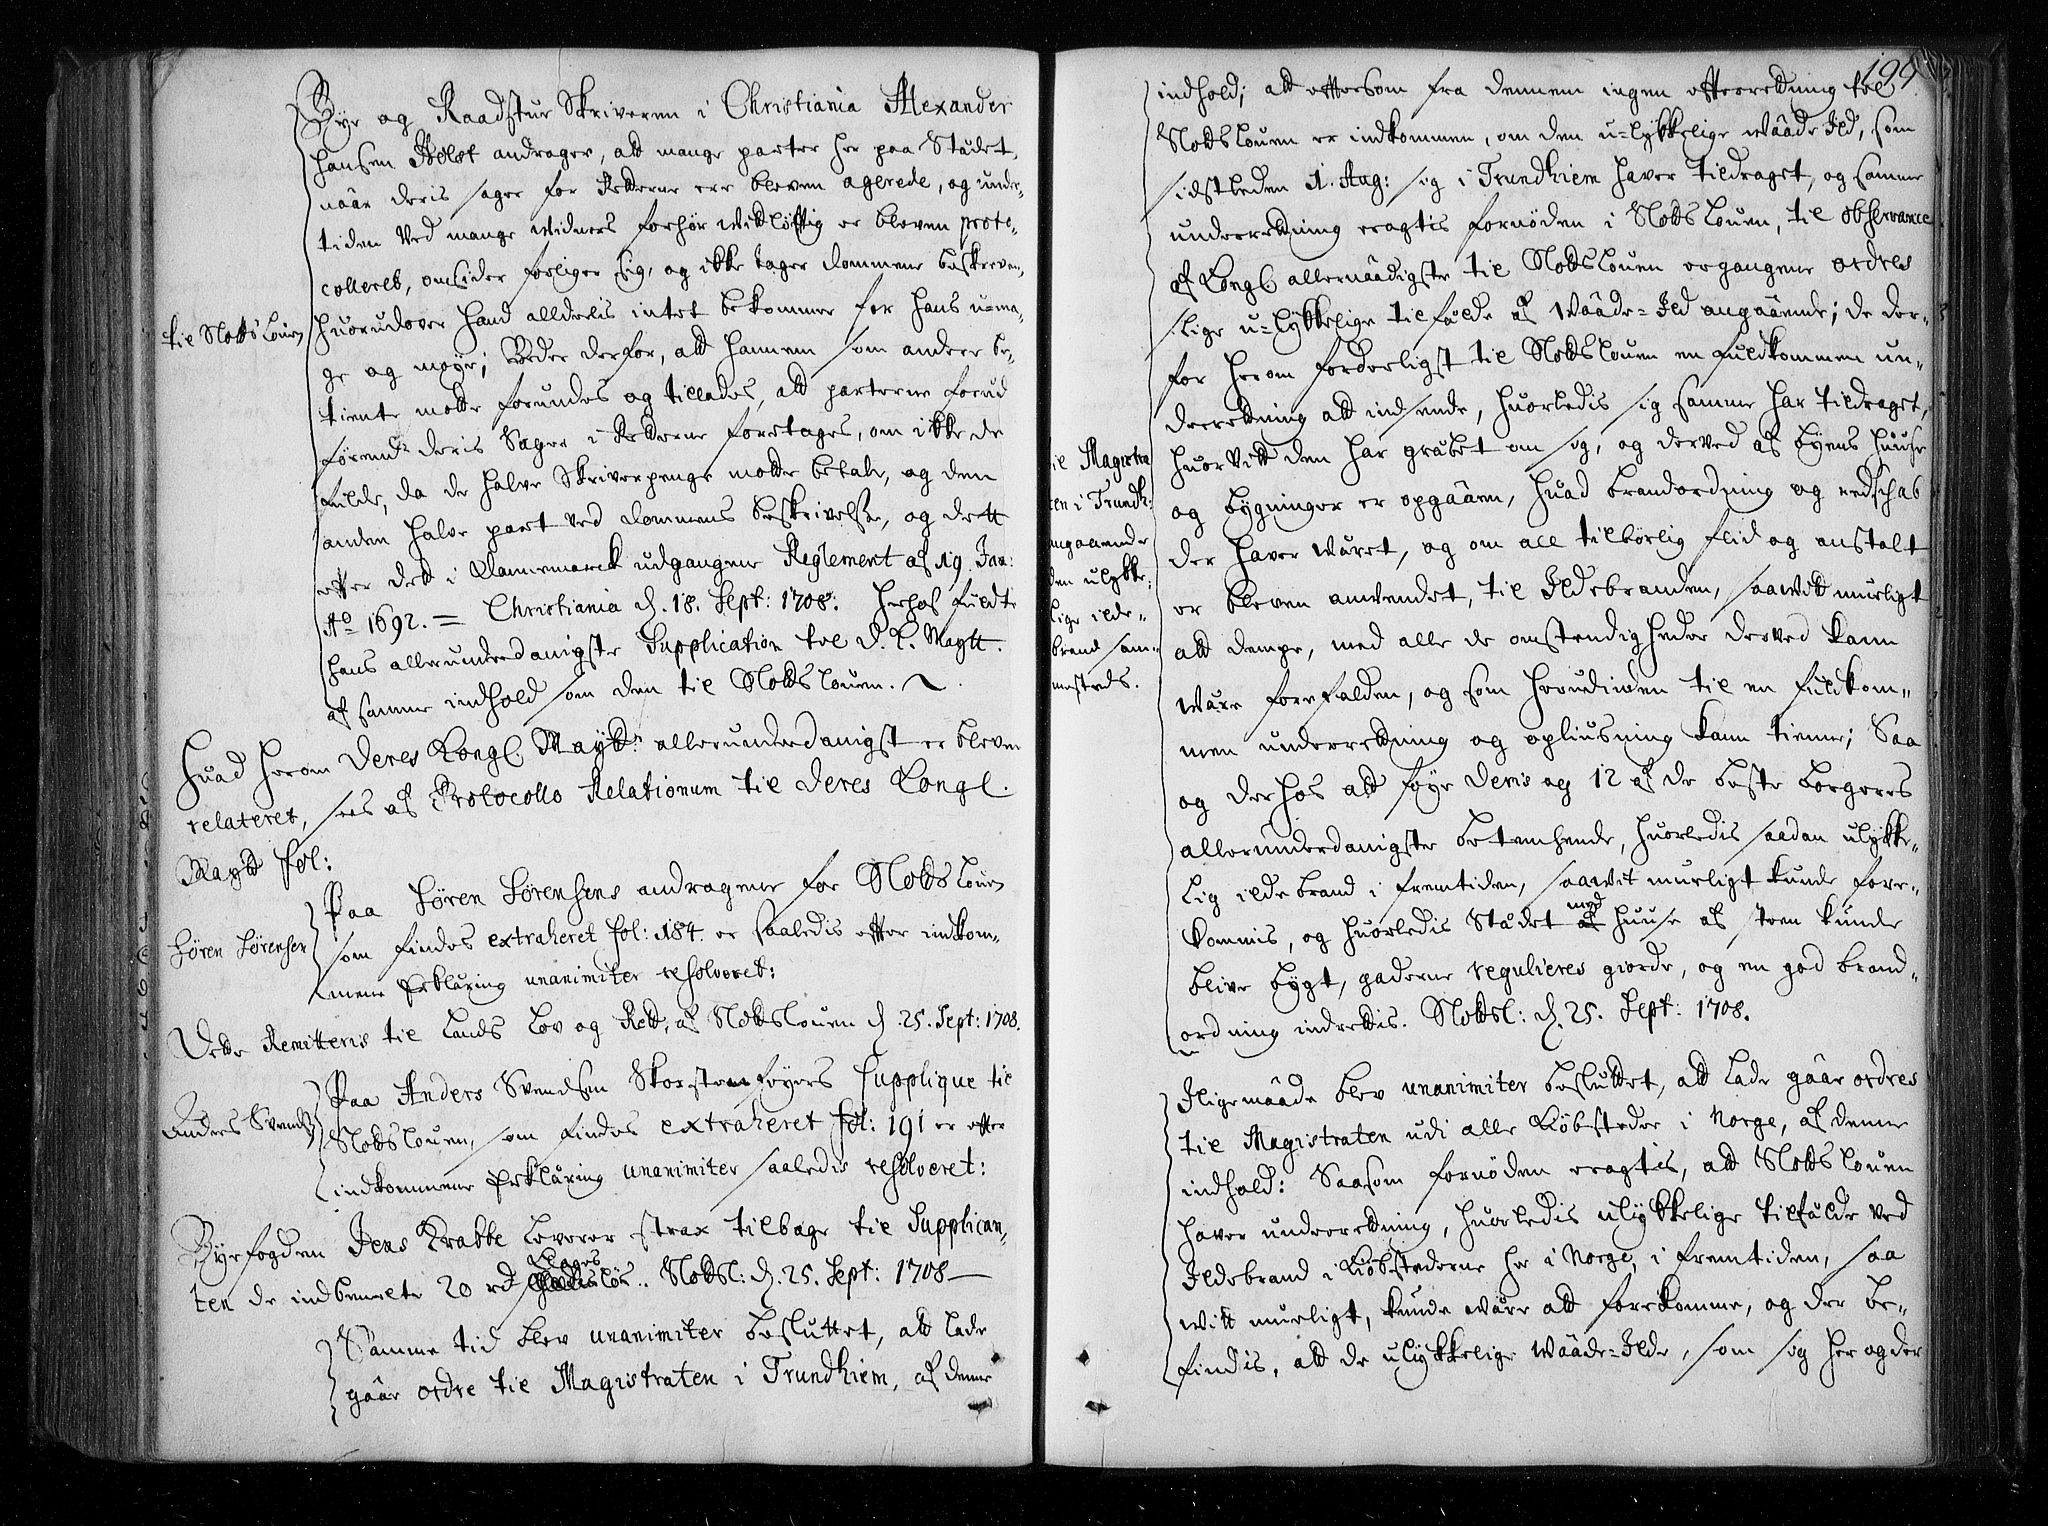 Bye og Raadstue Skriveren i Christiania Alexander
Hansen Holst andrager, att mange parter her paa Stædet,
naar deris sager for Retterne ere bleven agerede, og under-
tiden ved mange widners forhør widtløftig er bleven proto-
colleret, omsider forliger sig, og ikke tager dommene beskreven,
til Slotts Louen
huorudover hand alldelis intet bekommer for hans u-ma-
ge og møye; Beder derfor, att hannem som andere be-
tiente motte forundes og tillades, att parterne forud
førend deris Sager i Retterne foretages, om ikke de
fulde, da de halve Skriverpenge motte betale, og den
anden halve part ved dommens beskrivelse, og dett
efter dett i Dannemarck udgangene Reglement af 19. Jan:
Ao 1692. = Christiania d. 18. Sept: 1708. herhos fuldte
hans allerunderdanigste Supplication til D. K. Maytt.
af samme indhold som den til Slottslouen.
Huad herom Deres Kongl. Maytt. allerunderdanigst er bleven
relateret, sees af Protocollo Relationum til Deres Kongl.
Maytt fol:
Paa Søren Sørensens andragene for Slotts Louen
Søren Sørensen
som findes extraheret fol: 184. er saaledis effter indkom-
mene Erklæring unanimiter resolveret:
Dette Remitteris til Lands Lov og Rett, af Slottslouen d. 25. Sept: 1708.
Paa Anders Svendsen Skorstensføyers Supplique til
Anders Svends:
Slottslouen, som findes extraheret fol: 191 er effter
indkommene Erklæring unanimiter saaledis resolveret:
Byefogden Jens Krabbe leverer strax tilbage til Supplican-
ten de indbemelte 20 rd Klages løs. Slottsl: d. 25. Sept: 1708 —
Samme tid blev unanimiter besluttet, att lade
gaae ordre til Magistraten i Trundhiem, af denne
199
indhold; att efftersom fra dennem ingen effterretning til
Slottslouen er indkommen, om den u-lykkelige Waade Ild, som
sidstleden 1. Aug: sig i Trundhiem haver tildraget, og samme
underretning eragtis fornøden i Slotts Louen, til observance
af Kongl. allernaadigste til Slottslouen ergangene ordres
slige u-lykkelige tilfælde af Waade-Ild angaaende; de der-
for herom forderligst til Slottslouen en fuldkommen un-
derretning att indsende, huorledis sig samme har tildraget,
huorvitt den har grabet om sig, og derved af byens huuse
og bygninger er opgaaen, huad brandordning og redschab
der haver været, og om all tilbørlig flid og anstalt
er bleven anvendet, til Ildebranden, saawitt mueligt
att dempe, med alle de omstendigheder derved kand
være forefalden, og som herudinden til en fuldkom-
men underretning og opliusning kand tienne; Saa
og derhos att føye deris og 12 af de beste borgeres
allerunderdanigste betenkende, huorledis saadan ulykke-
lig ildebrand i fremtiden, saawit muligt kunde fore-
kommis, og huorledis Stædet med af huuse af steen kunde
blive bygt, gaderne regulieres giorde, og en god brand-
ordning indrettis. Slottsl: d. 25. Sept: 1708.
til Magistra
ten i Trundh:
angaaende
den ulykke-
lige ilde-
brand sam-
mesteds.
Iligemaade blev unanimiter besluttet, att lade gaae ordres
til Magistraten udi alle Kiøbsteder i Norge, af denne
indhold: Saasom fornøden eragtis, att Slotts Louen
haver underretning, huorledis ulykkelige tilfælde ved
Ildebrand i Kiøbstederne her i Norge, i fremtiden, saa
witt mueligt, kunde være att forekomme, og der be-
findis, att de ulykkelige Waade-Ilde, som sig her og der